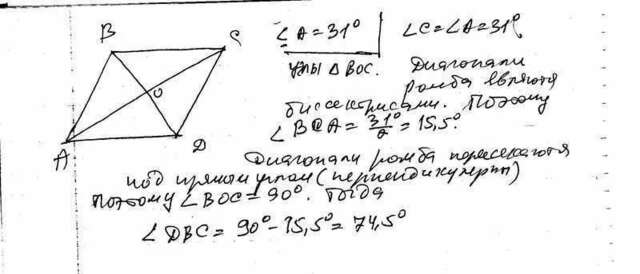 B
C
O
A
D
∠A=31° | ∠C=∠A=31°
углы △BOC. Диагонали
ромба являются
биссектрисами. Поэтому
∠BCA = 31°/2 = 15,5°.
Диагонали ромба пересекаются
под прямым углом (перпендикулярны)
Поэтому ∠BOC = 90°. Тогда
∠DBC = 90° - 15,5° = 74,5°